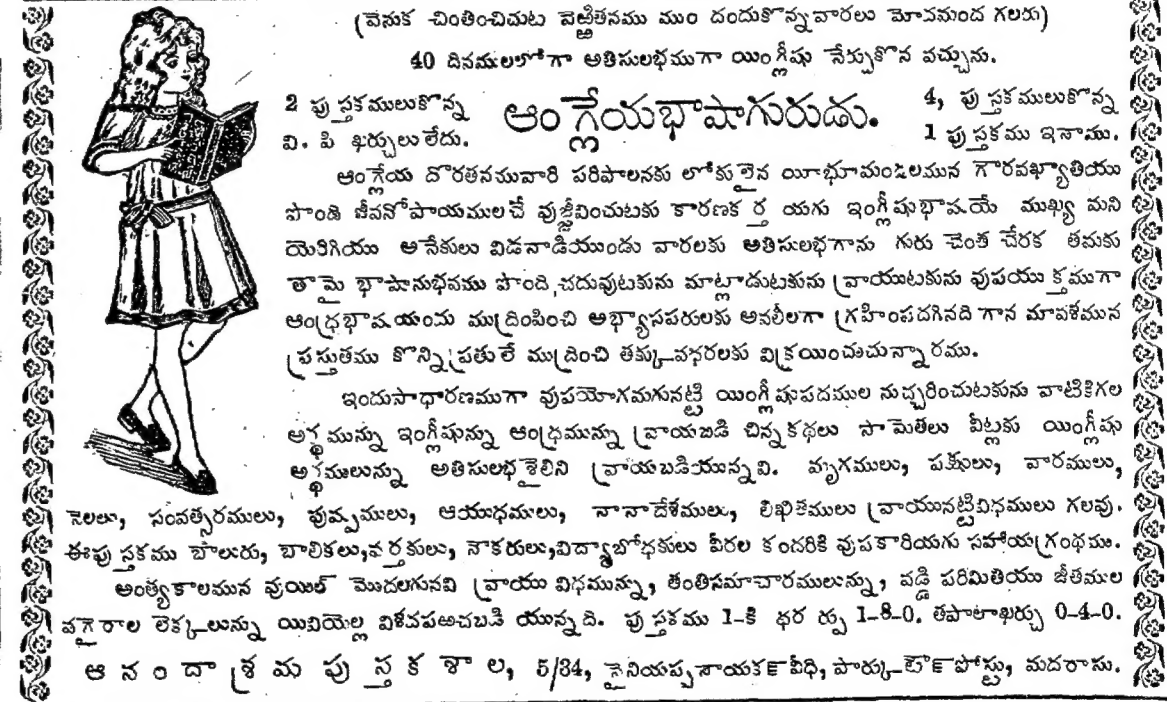 (వెనుక చింతించిచుట వెఱ్ఱితనము ముం దందుకొన్నవారలు మోదమంద గలరు)
40 దినములలోగా అతిసులభముగా యింగ్లీషు నేర్చుకొన వచ్చును.
2 పుస్తకములుకొన్న
వి. పి ఖర్చులు లేదు.
ఆంగ్లేయభాషాగురుడు.
4, పుస్తకములుకొన్న
1 పుస్తకము ఇనాము.
ఆంగ్లేయ దొరతనమువారి పరిపాలనకు లోకులైన యీభూమండలమున గౌరవఖ్యాతియు
పొంది జీవనోపాయములచే వుజ్జీవించుటకు కారణకర్త యగు ఇంగ్లీషుభాషయే ముఖ్య మని
యెరిగియు అనేకులు విడనాడియుండు వారలకు అతిసులభగాను గురు చెంత చేరక తమకు
తామై భాషానుభవము పొంది,చదువుటకును మాట్లాడుటకును వ్రాయుటకును వుపయుక్తముగా
ఆంధ్రభాషయందు ముద్రింపించి అభ్యాసపరులకు అవలీలగా గ్రహింపదగినది గాన మావశమున
ప్రస్తుతము కొన్ని ప్రతులే ముద్రించి తక్కువసరలకు విక్రయించుచున్నారము.
ఇందుసాధారణముగా వుపయోగమగునట్టి యింగ్లీషుపదముల నుచ్చరించుటకును వాటికిగల
అర్థమున్ను ఇంగ్లీషున్ను ఆంధ్రమున్ను వ్రాయబడి చిన్నకథలు సామెతలు వీట్లకు యింగ్లీషు
అర్థములున్ను అతిసులభశైలిని వ్రాయబడియున్నవి. మృగములు, పక్షులు, వారములు,
నెలలు, సంవత్సరములు, పువ్పములు, ఆయుధములు, నానాదేశములు, లిఖితములు వ్రాయునట్టివిధములు గలవు.
ఈపుస్తకము బాలురు, బాలికలు,వర్తకులు, నౌకరులు,విద్యాబోధకులు వీరల కందరికి వుపకారియగు సహాయగ్రంథము.
అంత్యకాలమున వుయిల్ మొదలగునవి వ్రాయు విధమున్ను, తంతిసమాచారములున్ను, వడ్డి పరిమితియు జీతముల
వగైరాల లెక్కలున్ను యివియెల్ల విశదపఱచబడి యున్నది. పుస్తకము 1-కి ధర రుపు 1-8-0. తపాలాఖర్చు 0-4-0.
ఆనందాశ్రమపుస్తకశాల, 5/34, నైనియప్పనాయకన్ వీధి, పార్కుటౌన్ పోస్టు, మదరాసు.